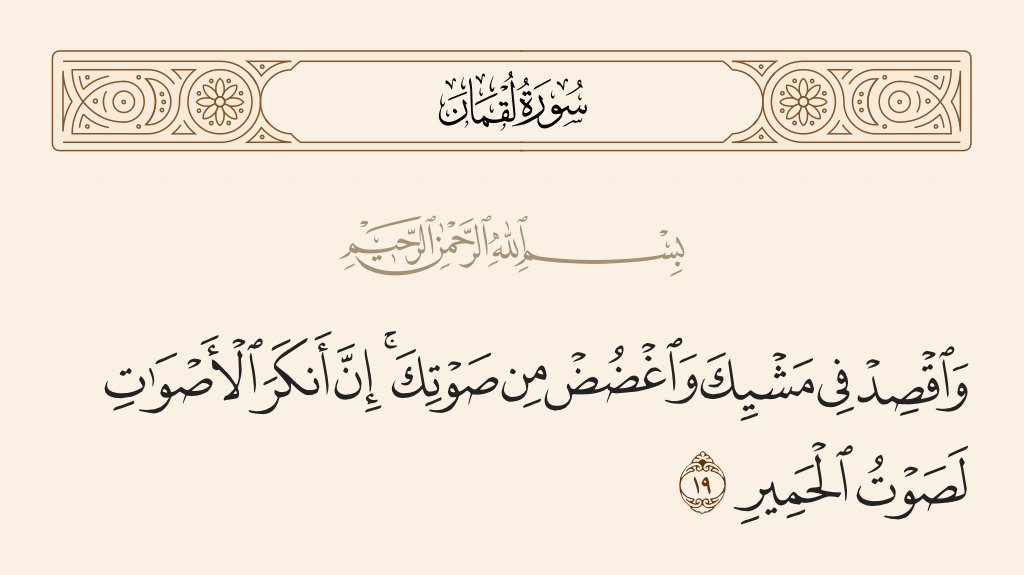 سُورَةُ لُقْمَان
بِسْمِ ٱللَّهِ ٱلرَّحْمَٰنِ ٱلرَّحِيمِ
وَٱقْصِدْ فِى مَشْيِكَ وَٱغْضُضْ مِن صَوْتِكَ ۚ إِنَّ أَنكَرَ ٱلْأَصْوَٰتِ
لَصَوْتُ ٱلْحَمِيرِ ١٩